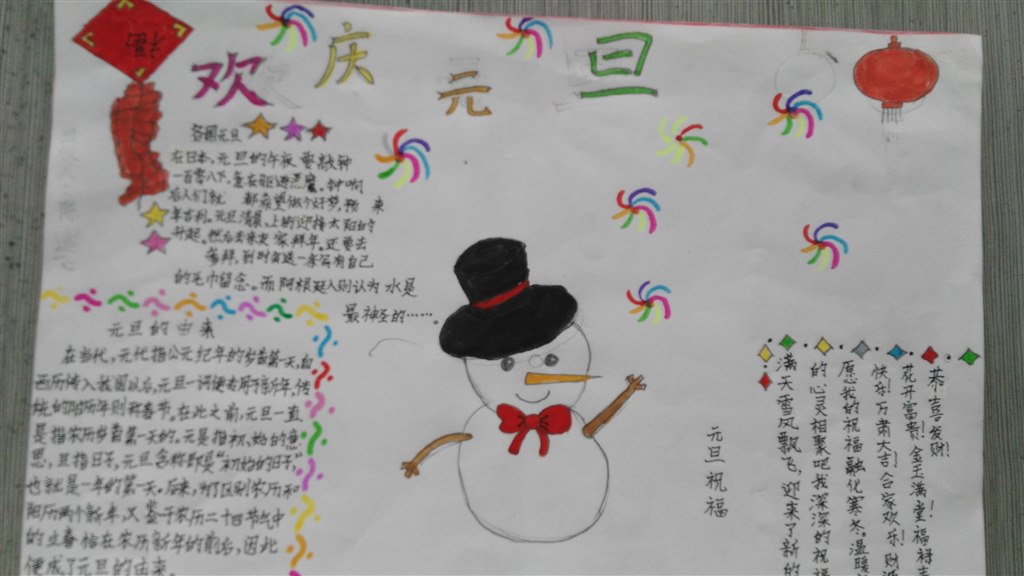 福
欢庆元旦
各国元旦
在日本,元旦的午夜,要敲钟
一百零八下,意在驱逐恶魔。钟响
后人们就 都希望做个好梦,预 来
年吉利。元旦清晨,上街迎接太阳的
升起。然后去亲友家拜年,还要去
参拜,到时会送一条写有自己
的毛巾留念。而阿根廷人则认为水是
最神圣的……。
元旦的由来
在当代,元代指公元纪年的岁首第一天,自
西历传入我国以后,元旦一词便专用于新年,传
统的阴历年则称春节。在此之前,元旦一直
是指农历岁首第一天的。元是指初、始的意
思,旦指日子,元旦合称即是“初始的日子”,
也就是一年的第一天。后来,为了区别农历和
阳历两个新年,又鉴于农历二十四节气中
的立春恰在农历新年的前后,因此
便成了元旦的由来。
元旦祝福
恭喜发财!
花开富贵!金玉满堂!福禄寿
快乐!万事大吉!合家欢乐!财源
愿我的祝福融化寒冬,温暖
的心灵相聚吧我深深的祝福
满天雪风飘飞,迎来了新的